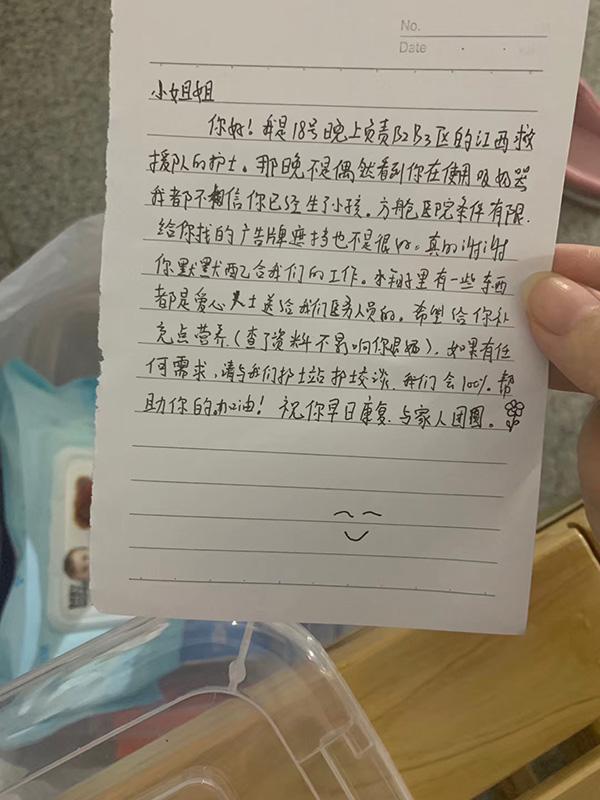 No.
Date
小姐姐
你好！我是18号晚上负责B2B3区的江西救
援队的护士。那晚不是偶然看到你在使用吸奶器
我都不相信你已经生了小孩。方舱医院条件有限.
给你找的广告牌遮挡也不是很好。真的谢谢
你默默配合我们的工作。水箱子里有一些东西
都是爱心人士送给我们医务人员的。希望给你补
充点营养(查了资料不影响你喂奶)。如果有任
何需求，请与我们护士站护士交谈.我们会100%帮
助你的。加油！祝你早日康复.与家人团圆。